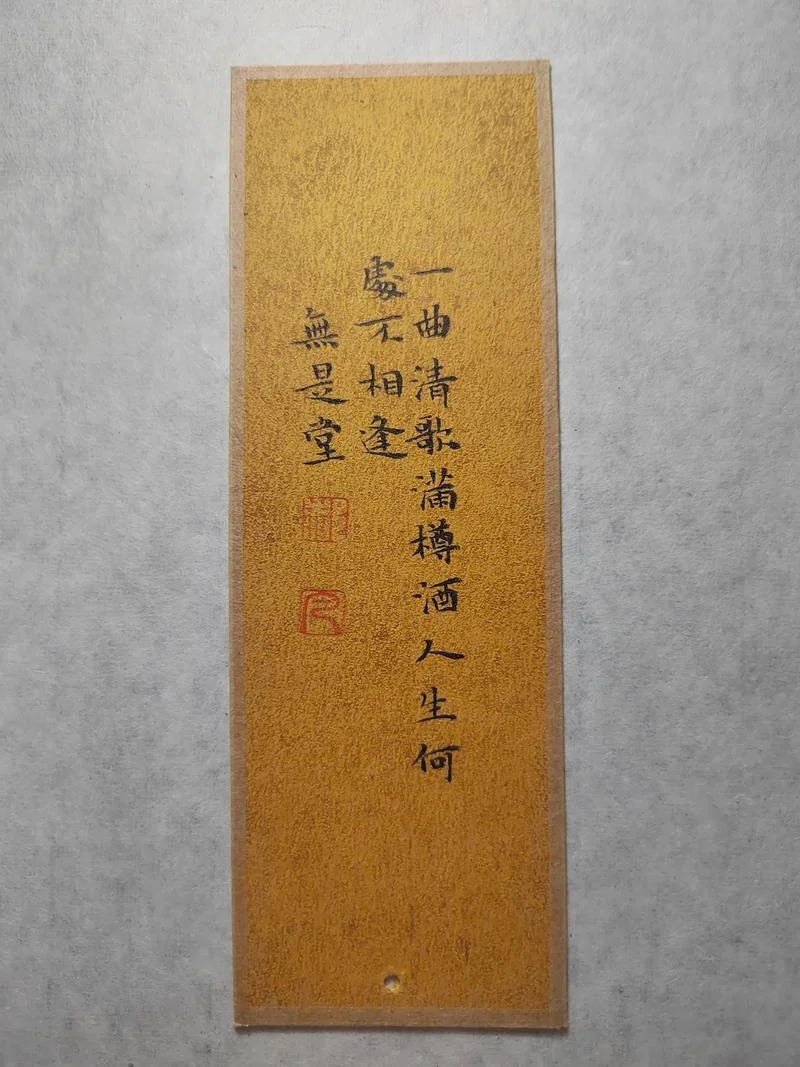 一曲清歌滿樽酒人生何
處不相逢
無是堂